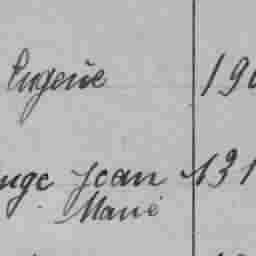 Eugène 190
uge Jean 131
Marie